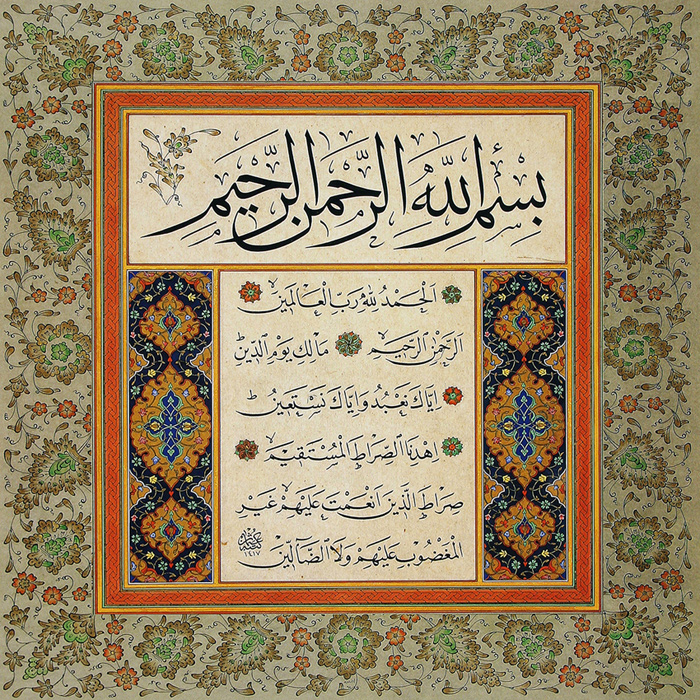 بِسْمِ اللّٰهِ الرَّحْمٰنِ الرَّحِيمِ
اَلْحَمْدُ لِلّٰهِ رَبِّ الْعَالَمِينَ
اَلرَّحْمٰنِ الرَّحِيمِ مَالِكِ يَوْمِ الدِّينِ
اِيَّاكَ نَعْبُدُ وَاِيَّاكَ نَسْتَعِينُ
اِهْدِنَا الصِّرَاطَ الْمُسْتَقِيمَ
صِرَاطَ الَّذِينَ اَنْعَمْتَ عَلَيْهِمْ غَيْرِ
الْمَغْضُوبِ عَلَيْهِمْ وَلَا الضَّٓالِّينَ